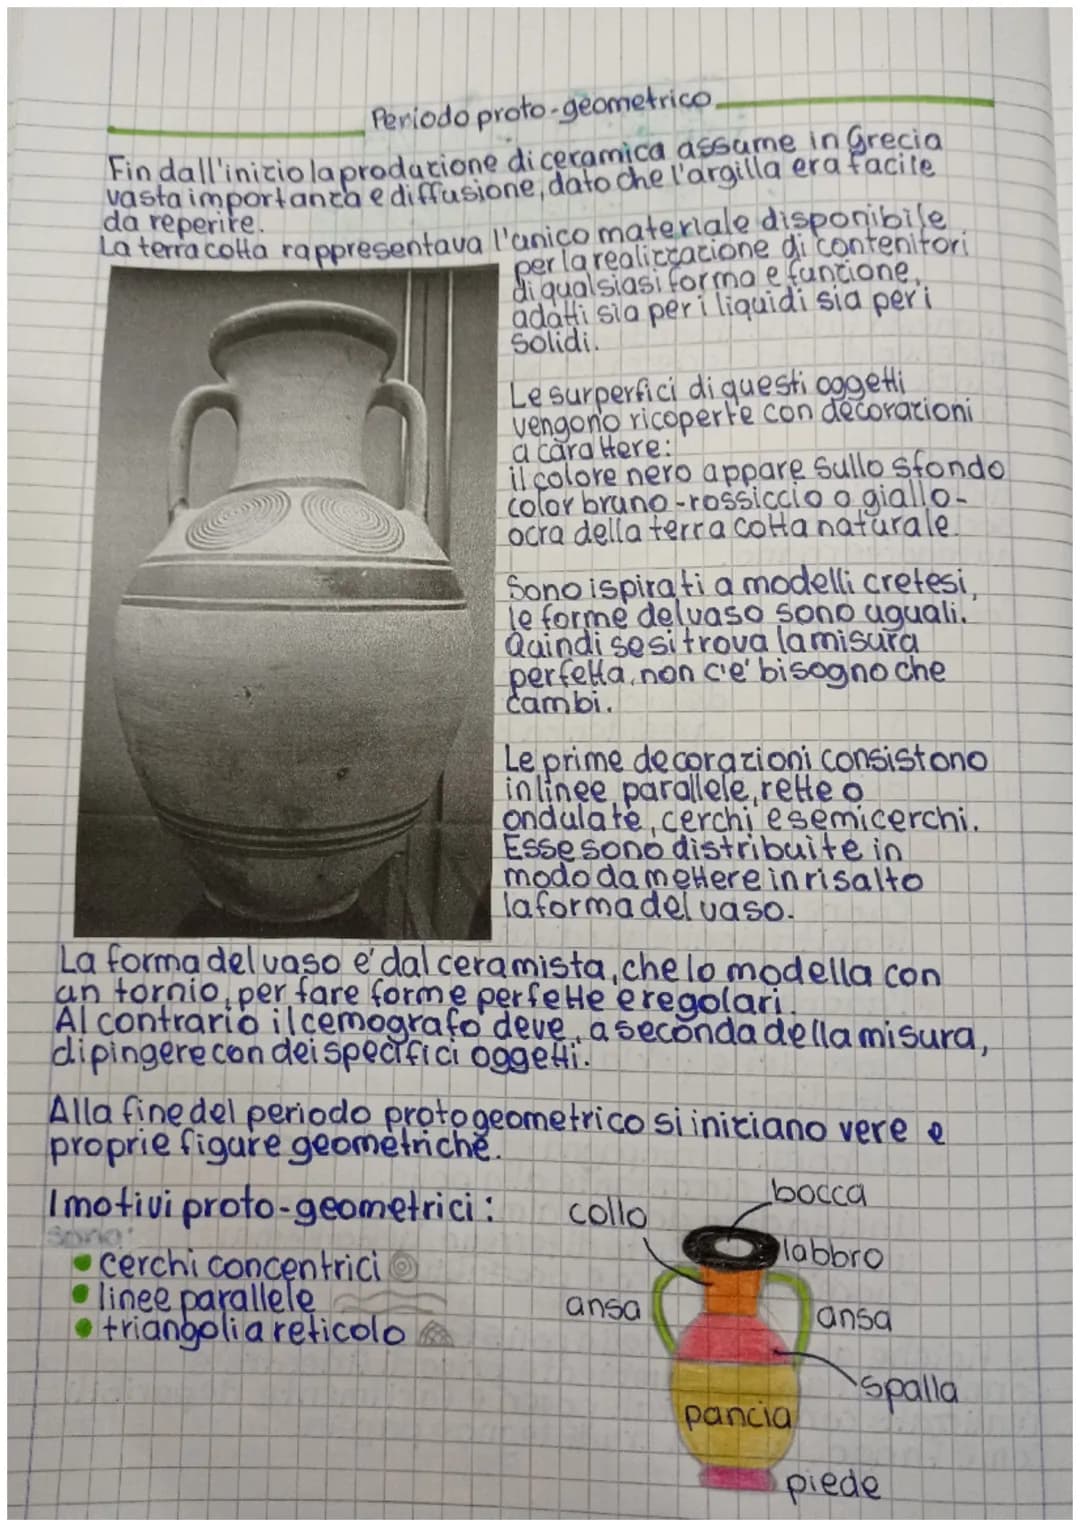 Periodo proto-geometrico
Fin dall'inizio la produzione di ceramica assume in Grecia
vasta importanza e diffusione, dato che l'argilla era facile
da reperire.
La terra cotta rappresentava l'unico materiale disponibile
per la realizzazione di contenitori
di qualsiasi forma e funzione,
adatti sia per i liquidi sia per i
solidi.
Le surperfici di questi oggetti
vengono ricoperte con decorazioni
a carattere:
il colore nero appare sullo sfondo
color bruno-rossiccio o giallo-
ocra della terra cotta naturale.
Sono ispirati a modelli cretesi,
le forme del vaso sono uguali.
Quindi se si trova la misura
perfetta, non c'e' bisogno che
cambi.
Le prime decorazioni consistono
in linee parallele, rette o
ondulate, cerchi e semicerchi.
Esse sono distribuite in
modo da mettere in risalto
la forma del vaso.
La forma del vaso e' dal ceramista, che lo modella con
un tornio, per fare forme perfette e regolari.
Al contrario il cemografo deve, a seconda della misura,
dipingere con dei specifici oggetti.
Alla fine del periodo protogeometrico si iniziano vere e
proprie figure geometriche.
I motivi proto-geometrici:
sono:
cerchi concentrici
linee parallele
triangoli a reticolo
bocca
collo
labbro
ansa
ansa
spalla
pancia
piede